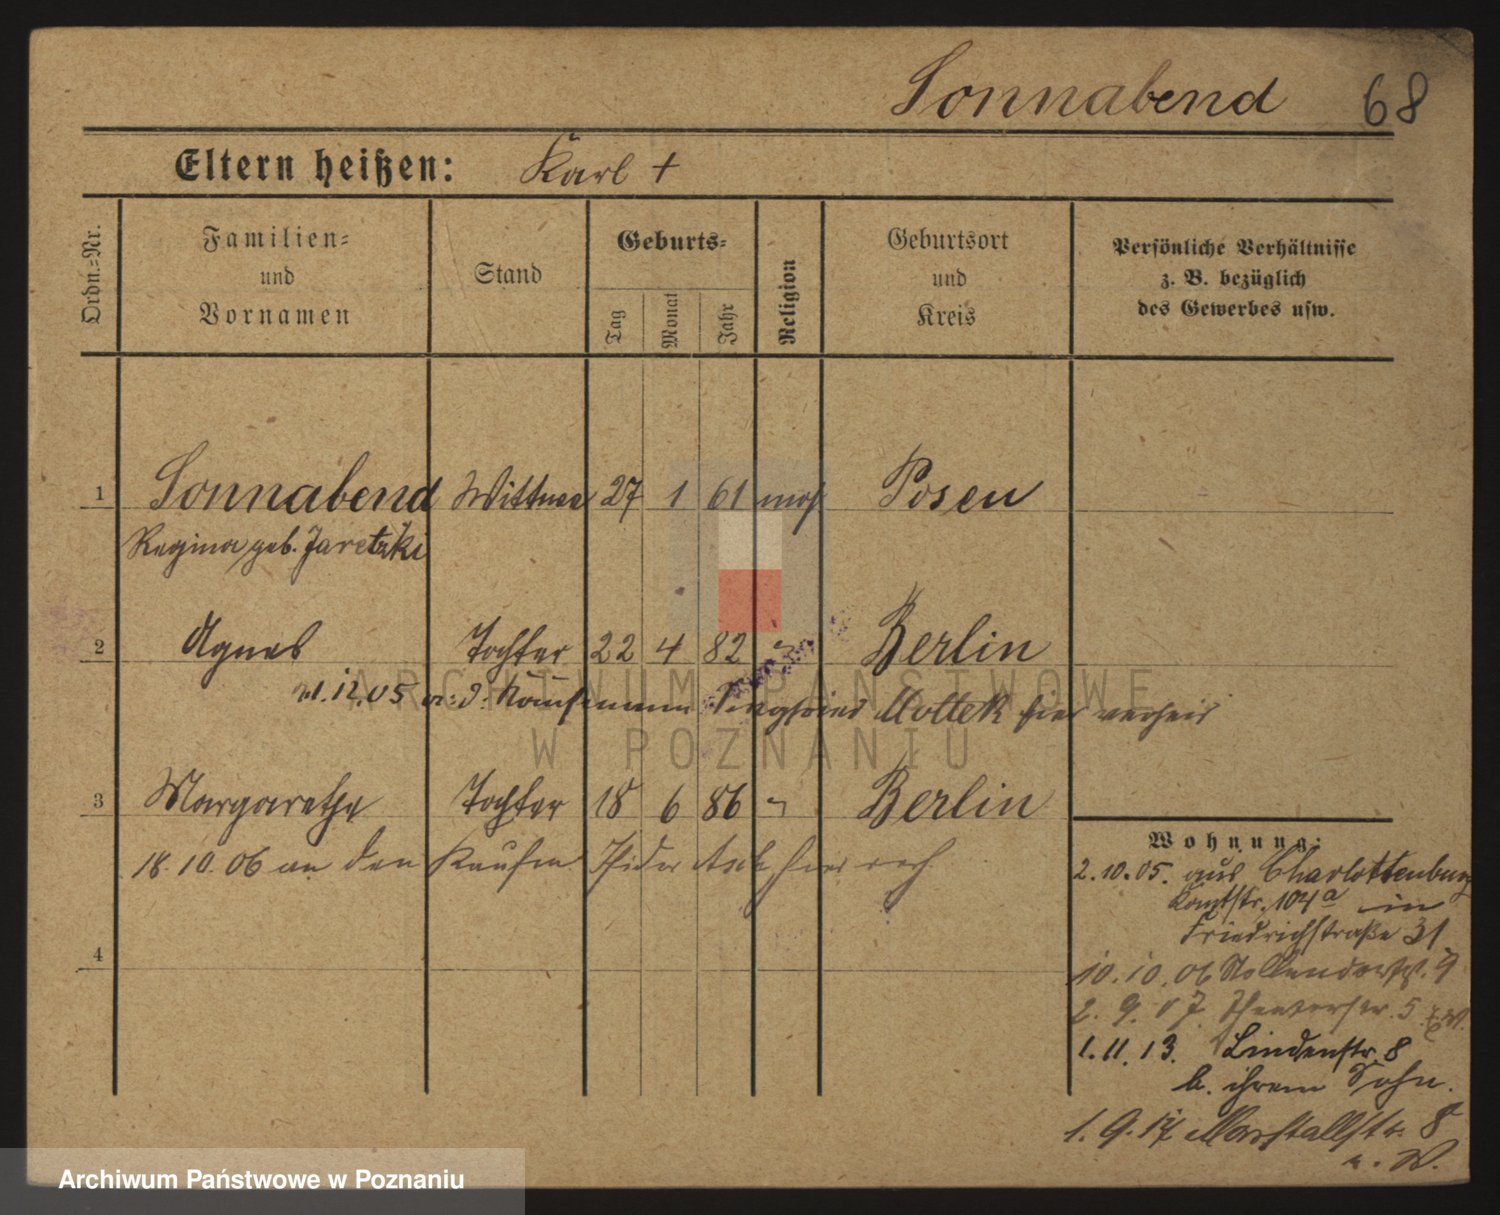 Sonnabend 68
Eltern heißen: Karl +
Ordn.-Nr.
Familien-
und
Vornamen
Stand
Geburts-
Tag
Monat
Jahr
Religion
Geburtsort
und
Kreis
Persönliche Verhältnisse
z. B. bezüglich
des Gewerbes usw.
1 Sonnabend Wittwe 27 1 61 mos Posen
Regina geb. Jaretzki
2 Agnes Tochter 22 4 82 " Berlin
12.05 Kaufmann Mottek hier verheir
3 Margarethe Tochter 18 6 86 " Berlin
18.10.06 an den Kaufm hier
4
Wohnung:
2.10.05. aus Charlottenburg
Kantstr. 104a in
Friedrichstraße 31
10.10.06 Nollendorfstr. 9
2.9.07 5
1.11.13. Lindenstr. 8
b. ihrem Sohn.
1.9.17 Marstallstr. 8
ARCHIWUM PAŃSTWOWE
W POZNANIU
Archiwum Państwowe w Poznaniu